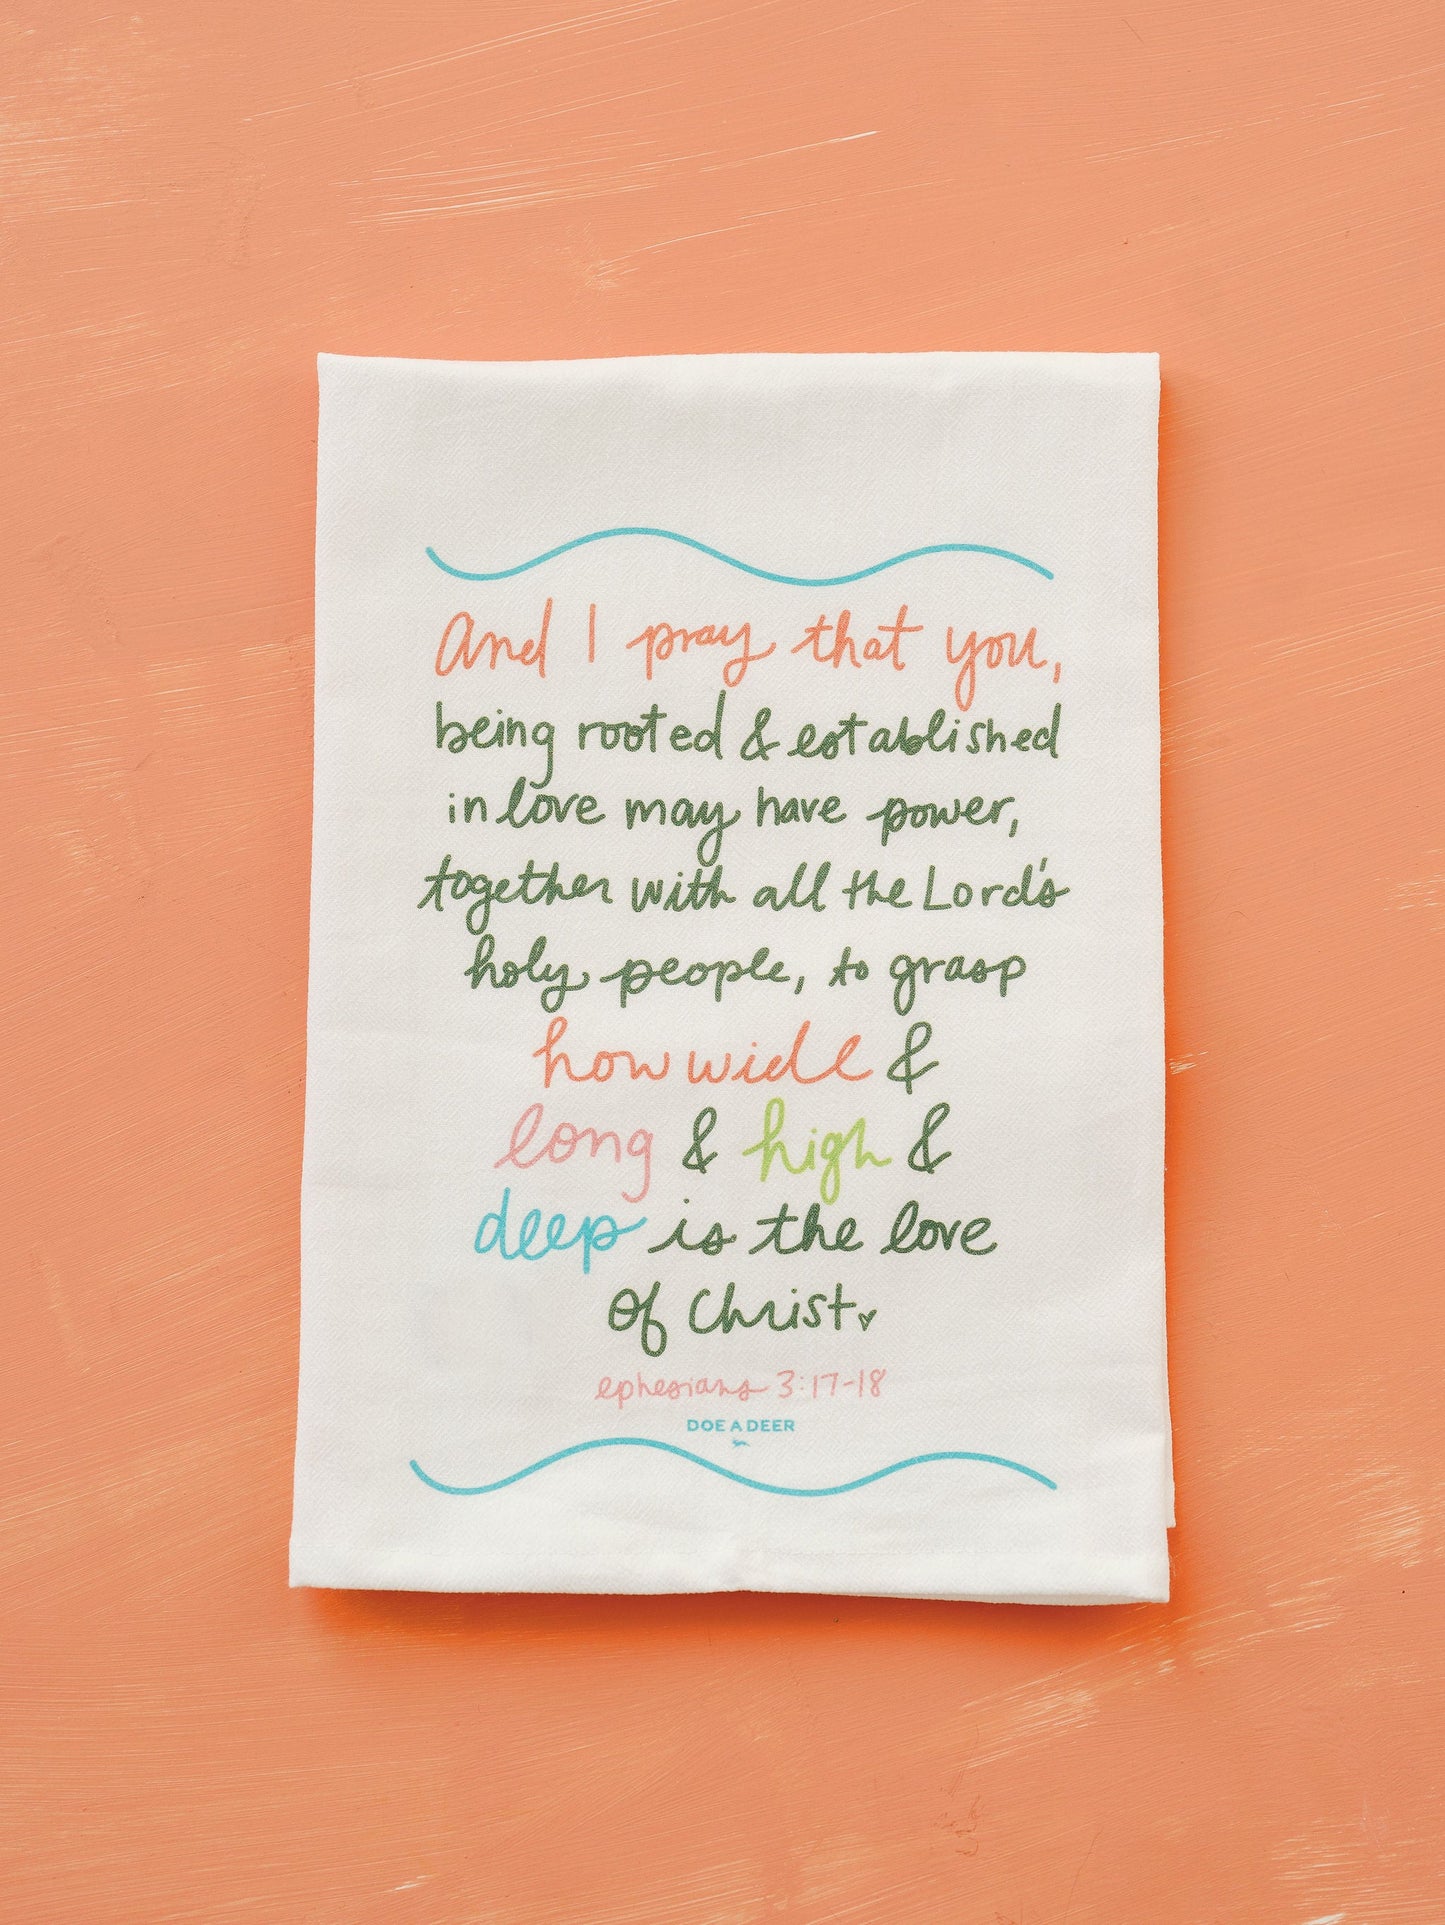 And I pray that you,
being rooted & established
in love may have power,
together with all the Lord's
holy people, to grasp
how wide &
long & high &
deep is the love
of Christ
ephesians 3:17-18
DOE A DEER